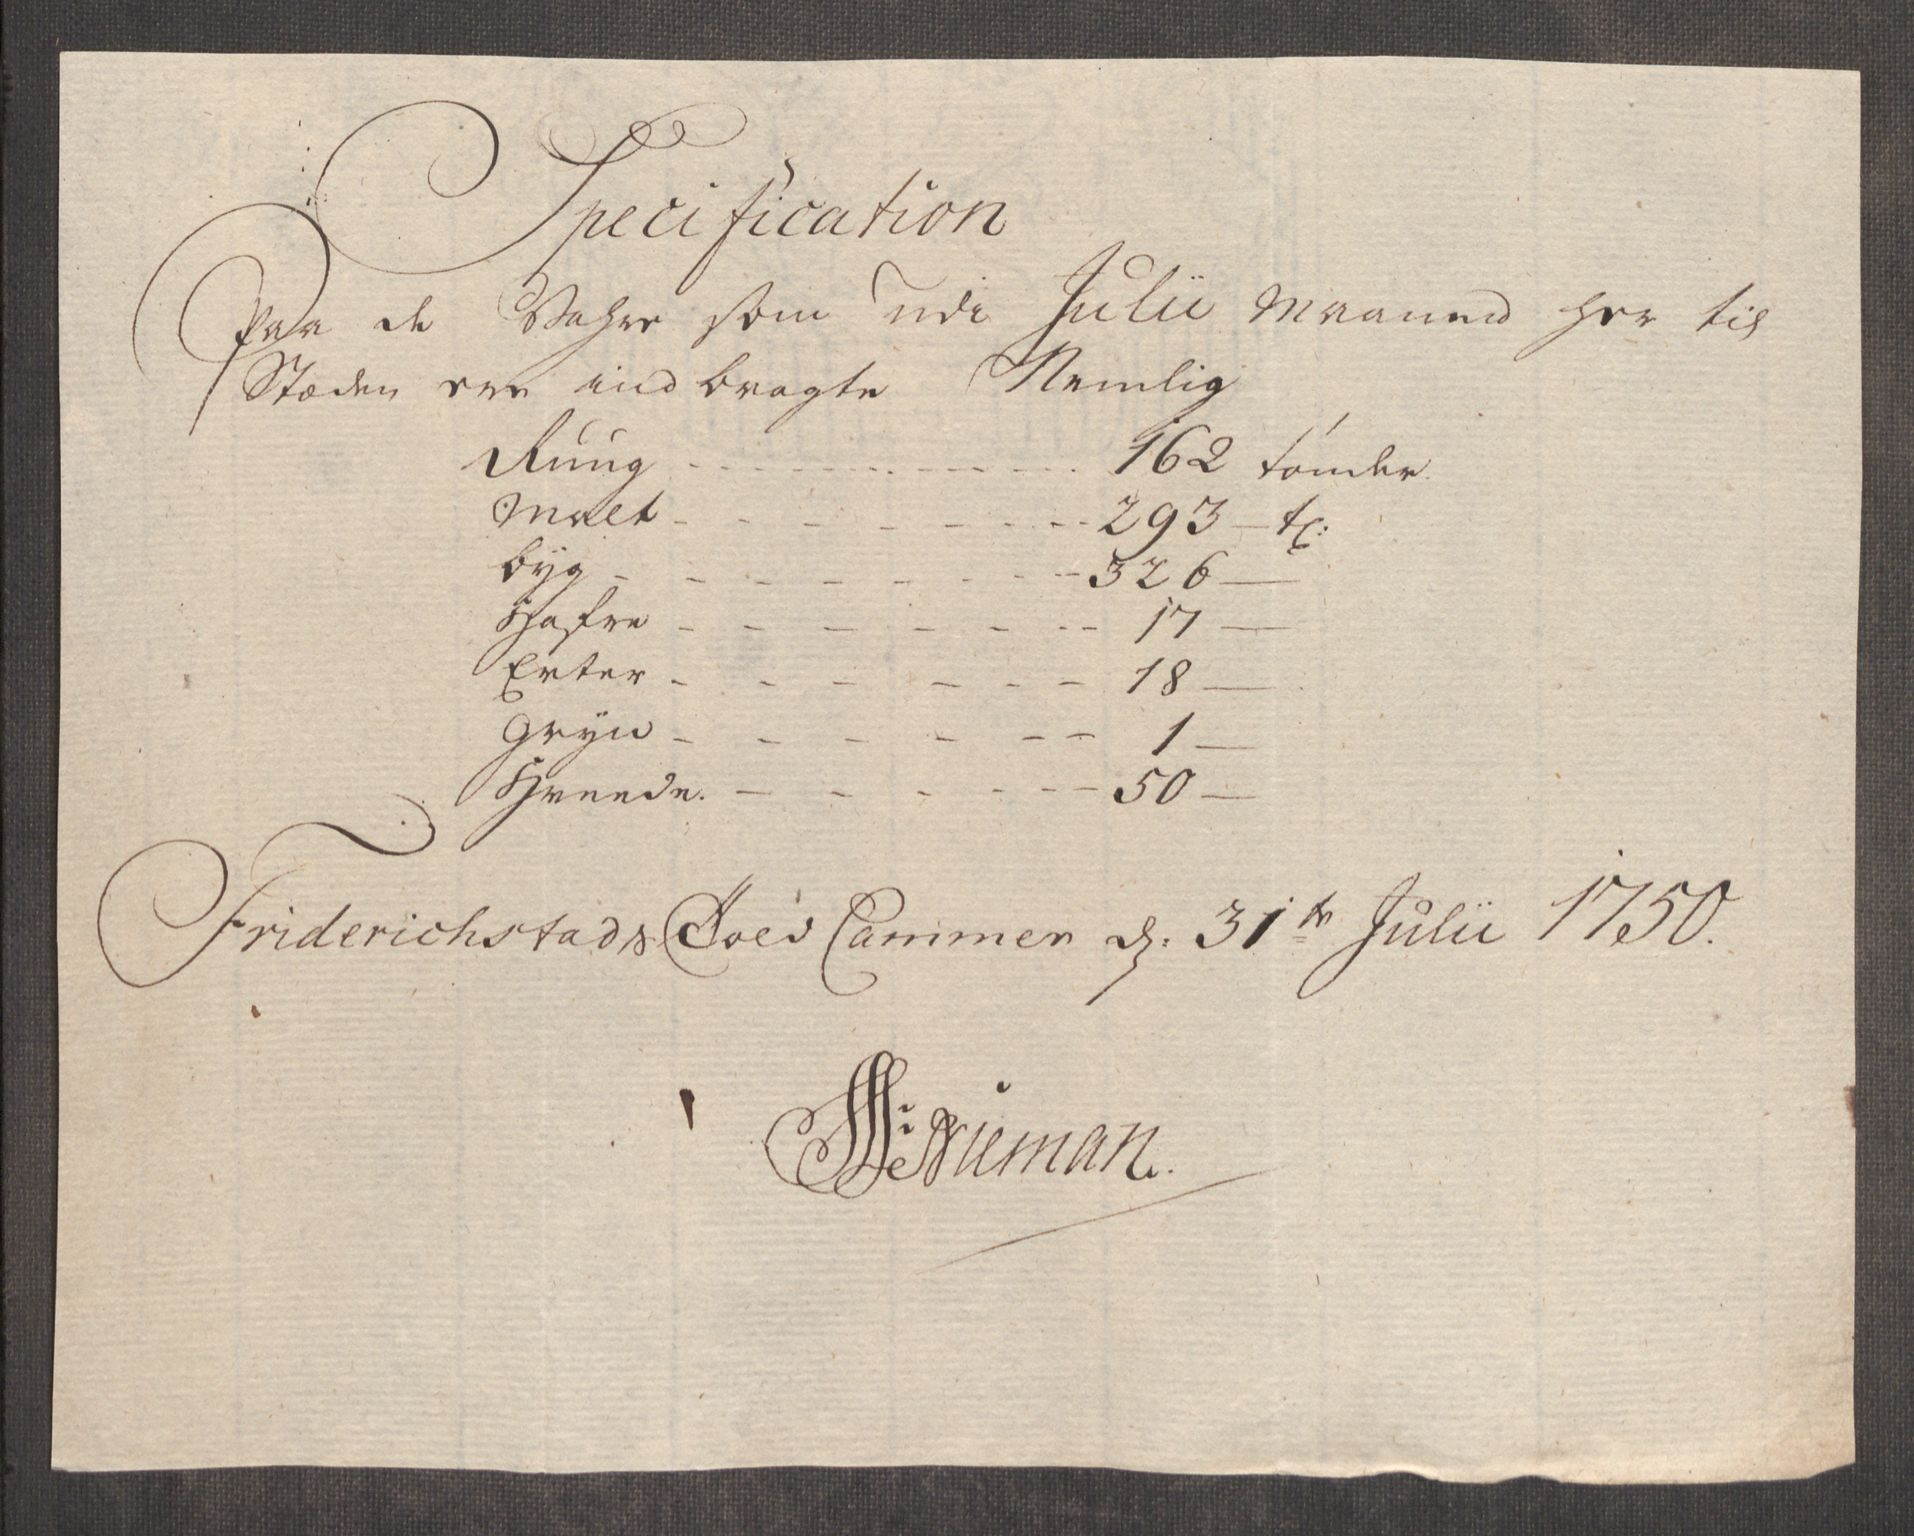 Specification
Paa de Wahre som udi Julii Maaned her til
Stæden ere indbragte Nemlig
Ruug - - - - - - - - - - - 162 tønder.
Malt - - - - - - - - 293 - tr:
Byg - - - - - - - - 326 -
Hafre - - - - - - - 17 -
Erter - - - - - - 18 -
Gryn - - - - - - 1 -
Hveede. - - - - - - 50 -
Friderichstads Told Cammer d: 31te Julii 1750.
Nieman.